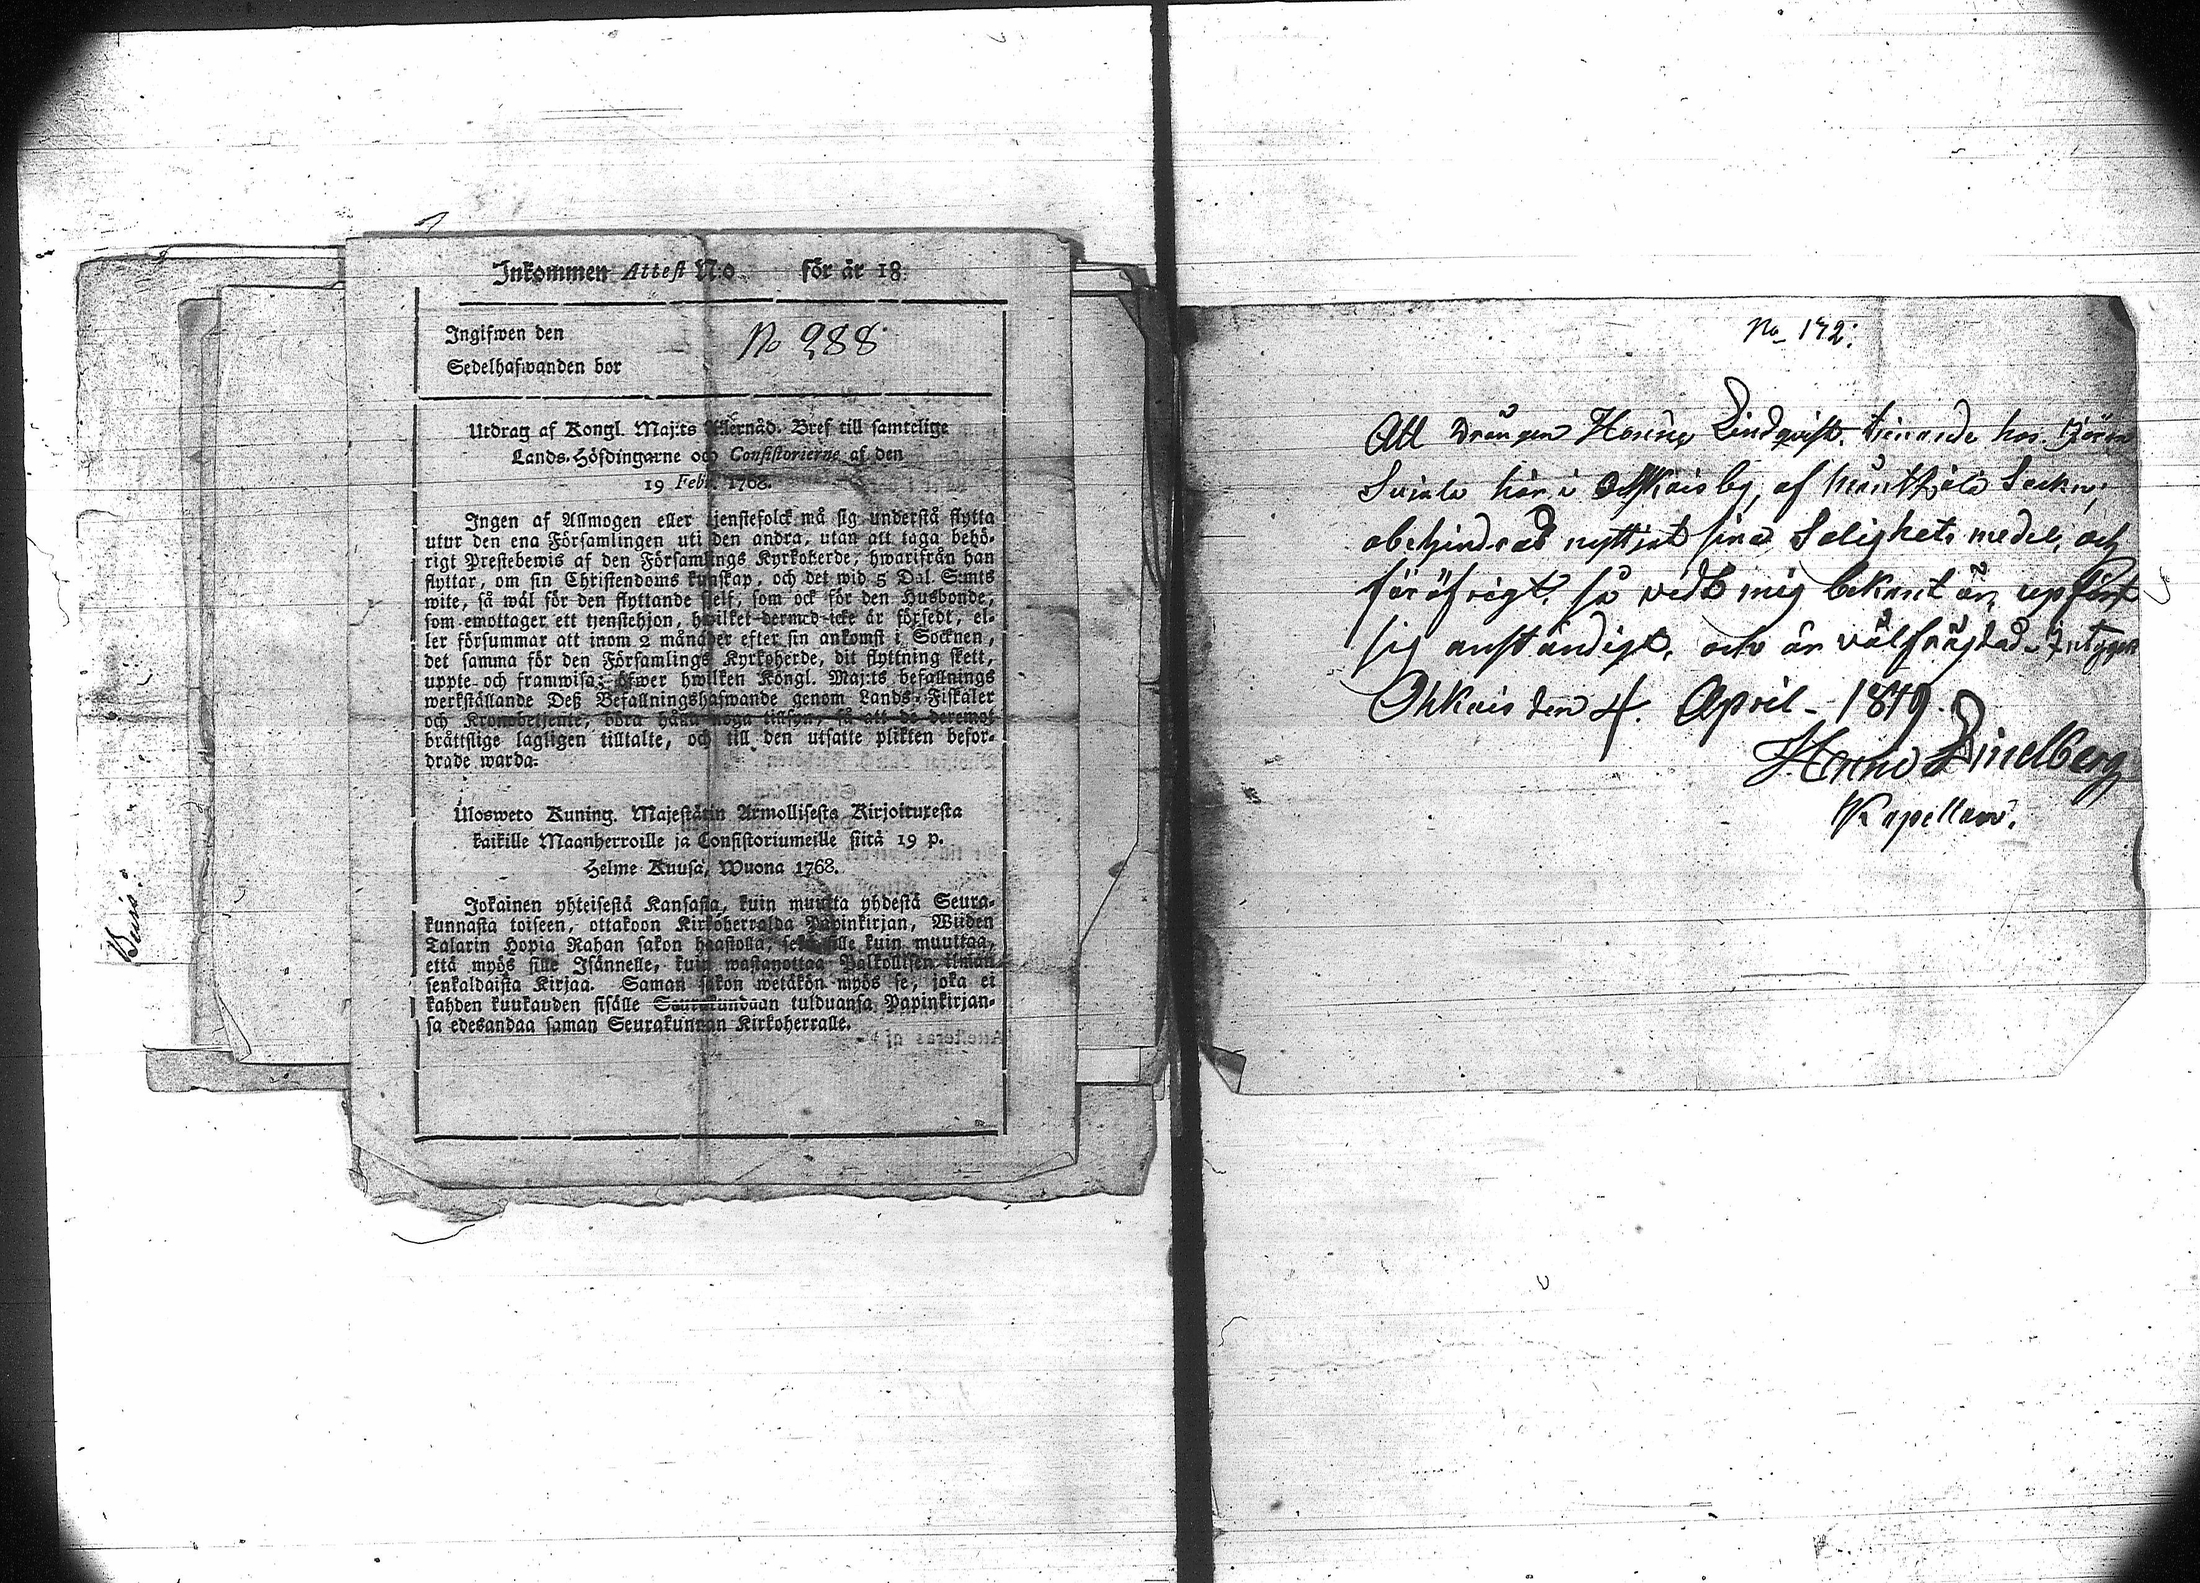 Inkommen Attest N:o för år 18
Ingifwen den
No 288
Sedelhafwanden bor
Utdrag af Kongl. Maj:ts Allernåd. Bref till samtelige
Lands-Höfdingarne och Consistorierne af den
19 Febr. 1768.
Ingen af Allmogen eller tjenstefolck må sig understå flytta
utur den ena Församlingen uti den andra, utan att taga behö-
rigt Prestebewis af den Församlings Kyrkoherde, hwarifrån han
flyttar, om sin Christendoms kunskap, och det wid 5 Dal. S:mts
wite, så wäl för den flyttande sielf, som ock för den Husbonde,
som emottager ett tjenstehjon, hwilket dermed icke är försedt, el-
ler försummar att inom 2 månader efter sin ankomst i Socknen,
det samma för den Församlings Kyrkoherde, dit flyttning skett,
uppte och framwisa; öfwer hwilken Kongl. Maj:ts befallnings
werkställande Deß Befallningshafwande genom Lands-Fiskaler
och Kronobetjente, böra hålla noga tillsyn, så att de deremot
bråttslige lagligen tilltalte, och till den utsatte plikten befor-
drade warda.
Ulosweto Kuning. Majestätin Armollisesta Kirjoituxesta
kaikille Maanherroille ja Consistoriumeille siitä 19 p.
Helme Kuusa, Wuona 1768.
Jokainen yhteisestä Kansasta, kuin muutta yhdestä Seura-
kunnasta toiseen, ottakoon Kirkoherralda Papinkirjan, Wiiden
Talarin Hopia Rahan sakon haastolla, sekä sille kuin muuttaa,
että myös sille Isännelle, kuin wastanottaa Palkollisen ilman
senkaldaista Kirjaa. Saman sakon wetäkön myös se, joka ei
kahden kuukauden sisälle Seurakundaan tulduansa Papinkirjan-
sa edesandaa saman Seurakunnan Kirkoherralle.
No 172:
Att Drängen Henric Lindqvist, tienande hos
här i by, af Sockn,
obehindrad nyttjat sina Salighets medel, och
föröfrigt, så vidt mig bekant är, upfört
sig anständigt, och är välfrägdad. Intygar
Ohkais den 4. April - 1819.
Henric Lindberg
Kapellan.